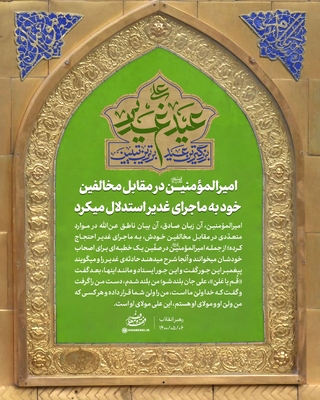 عید غدیر
امیرالمؤمنین در مقابل مخالفین
خود به ماجرای غدیر استدلال میکرد
امیرالمؤمنین، آن زبان صادق، آن بیان ناطق عن‌الله در موارد
متعددی در مقابل مخالفین خودش، به ماجرای غدیر احتجاج
کرده؛ از جمله امیرالمؤمنین در صفّین یک خطبه‌ای برای اصحاب
خودشان میخوانند و آنجا شرح میدهند حادثه‌ی غدیر را و میگویند
پیغمبر این جور گفت و این جور ایستاد و مانند اینها، بعد گفت
«قُم یا عَلیّ»، علی جان بلند شو! من بلند شدم، دست من را گرفت
و گفت که خدا ولیّ ما است، من را ولیّ شما قرار داده و هر کسی که
من ولیّ او و مولای او هستم، این علی مولای او است.
رهبر انقلاب
۱۴۰۰/۰۵/۰۶
KHAMENEI.IR